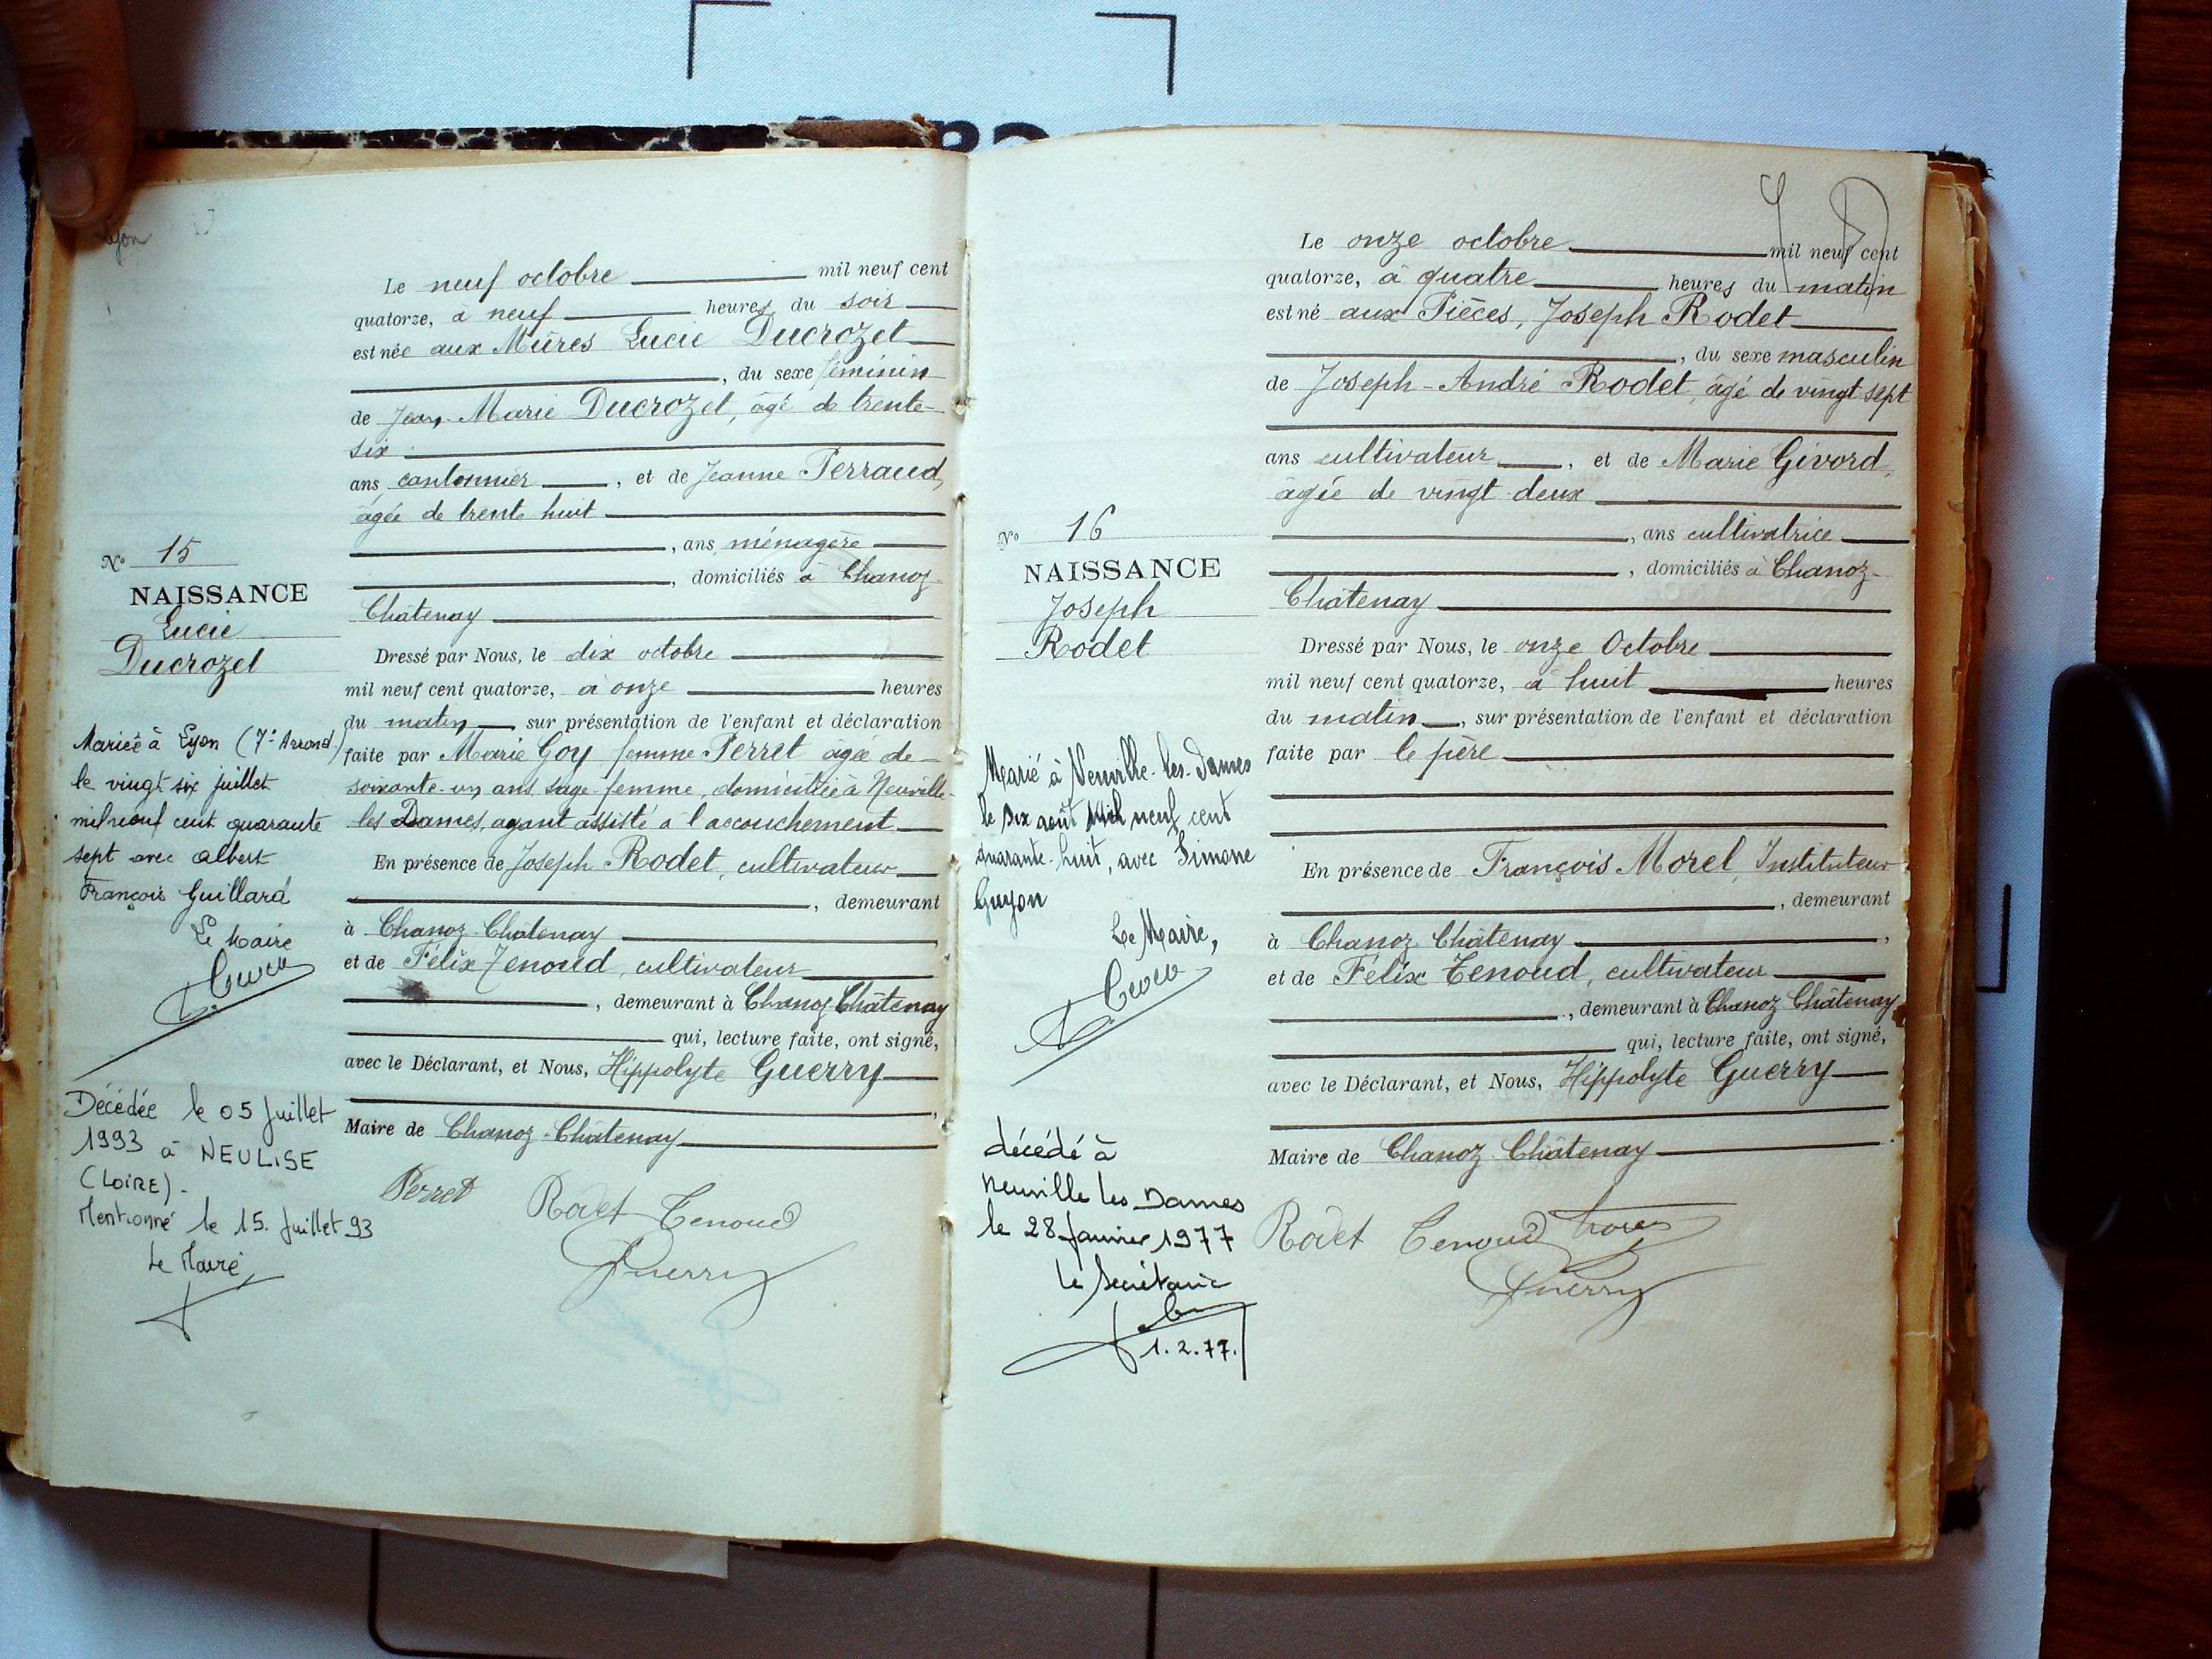 Lyon
Le neuf octobre mil neuf cent
quatorze, à neuf heures du soir
est née aux Mûres Lucie Ducrozet
, du sexe féminin
de Jean-Marie Ducrozet, âgé de trente-
six
ans cantonnier, et de Jeanne Perraud,
âgée de trente huit
, ans ménagère
, domiciliés à Chanoz-
Châtenay
Dressé par Nous, le dix octobre
mil neuf cent quatorze, à onze heures
du matin sur présentation de l'enfant et déclaration
faite par Marie Goy femme Perret âgée de
soixante-un ans, sage-femme, domiciliée à Neuville-
les Dames, ayant assisté à l'accouchement
En présence de Joseph Rodet, cultivateur
, demeurant
à Chanoz-Châtenay
et de Félix Tenoud, cultivateur
, demeurant à Chanoz-Châtenay
qui, lecture faite, ont signé,
avec le Déclarant, et Nous, Hippolyte Guerry
,
Maire de Chanoz-Châtenay
Perret Rodet Tenoud
Guerry
No 15
NAISSANCE
Lucie
Ducrozet
Mariée à Lyon (7e Arrond)
le vingt six juillet
mil neuf cent quarante
sept avec Albert
François Guillard
Le Maire
Décédée le 05 Juillet
1993 à NEULISE
(LOIRE).
Mentionné le 15. Juillet 93
Le Maire
Le onze octobre mil neuf cent
quatorze, à quatre heures du matin
est né aux Pièces, Joseph Rodet
, du sexe masculin
de Joseph-André Rodet, âgé de vingt sept
ans cultivateur, et de Marie Givord,
âgée de vingt-deux
, ans cultivatrice
, domiciliés à Chanoz-
Châtenay
Dressé par Nous, le onze Octobre
mil neuf cent quatorze, à huit heures
du matin, sur présentation de l'enfant et déclaration
faite par le père
En présence de François Morel, Instituteur
, demeurant
à Chanoz-Châtenay,
et de Félix Tenoud, cultivateur
, demeurant à Chanoz-Châtenay
qui, lecture faite, ont signé,
avec le Déclarant, et Nous, Hippolyte Guerry
Maire de Chanoz-Châtenay
Rodet Tenoud
Guerry
No 16
NAISSANCE
Joseph
Rodet
Marié à Neuville-les-Dames
le six août mil neuf cent
quarante-huit, avec Simone
Guyon
Le Maire,
décédé à
Neuville les Dames
le 28 Janvier 1977
le Secrétaire
1.2.77.